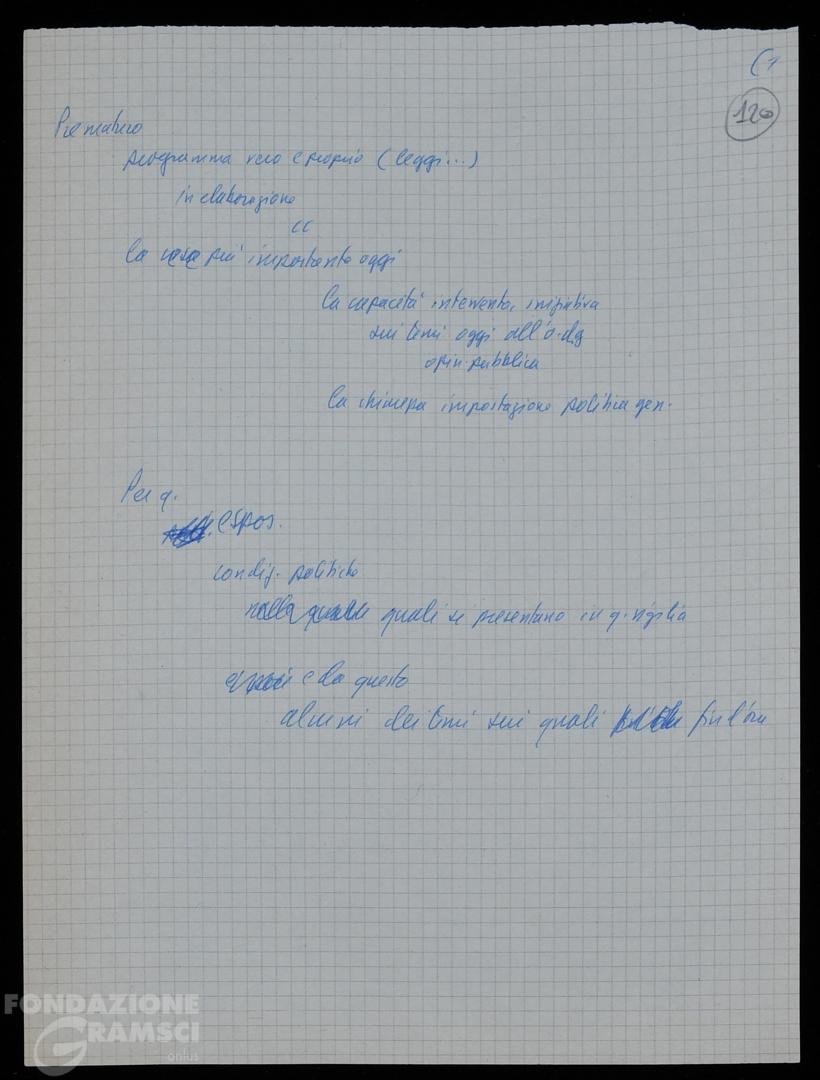 (1
120
Prematuro
programma vero e proprio (leggi...)
in elaborazione
CC
la cosa più importante oggi
la capacità intervento, iniziativa
sui temi oggi all'o.d.g
opin. pubblica
la chiarezza impostazione politica gen.
Per q.
espos.
condiz. politiche
nelle quali si presentano in q. vigilia
e da questo
alcuni dei temi sui quali fin d'ora
FONDAZIONE
GRAMSCI
onlus